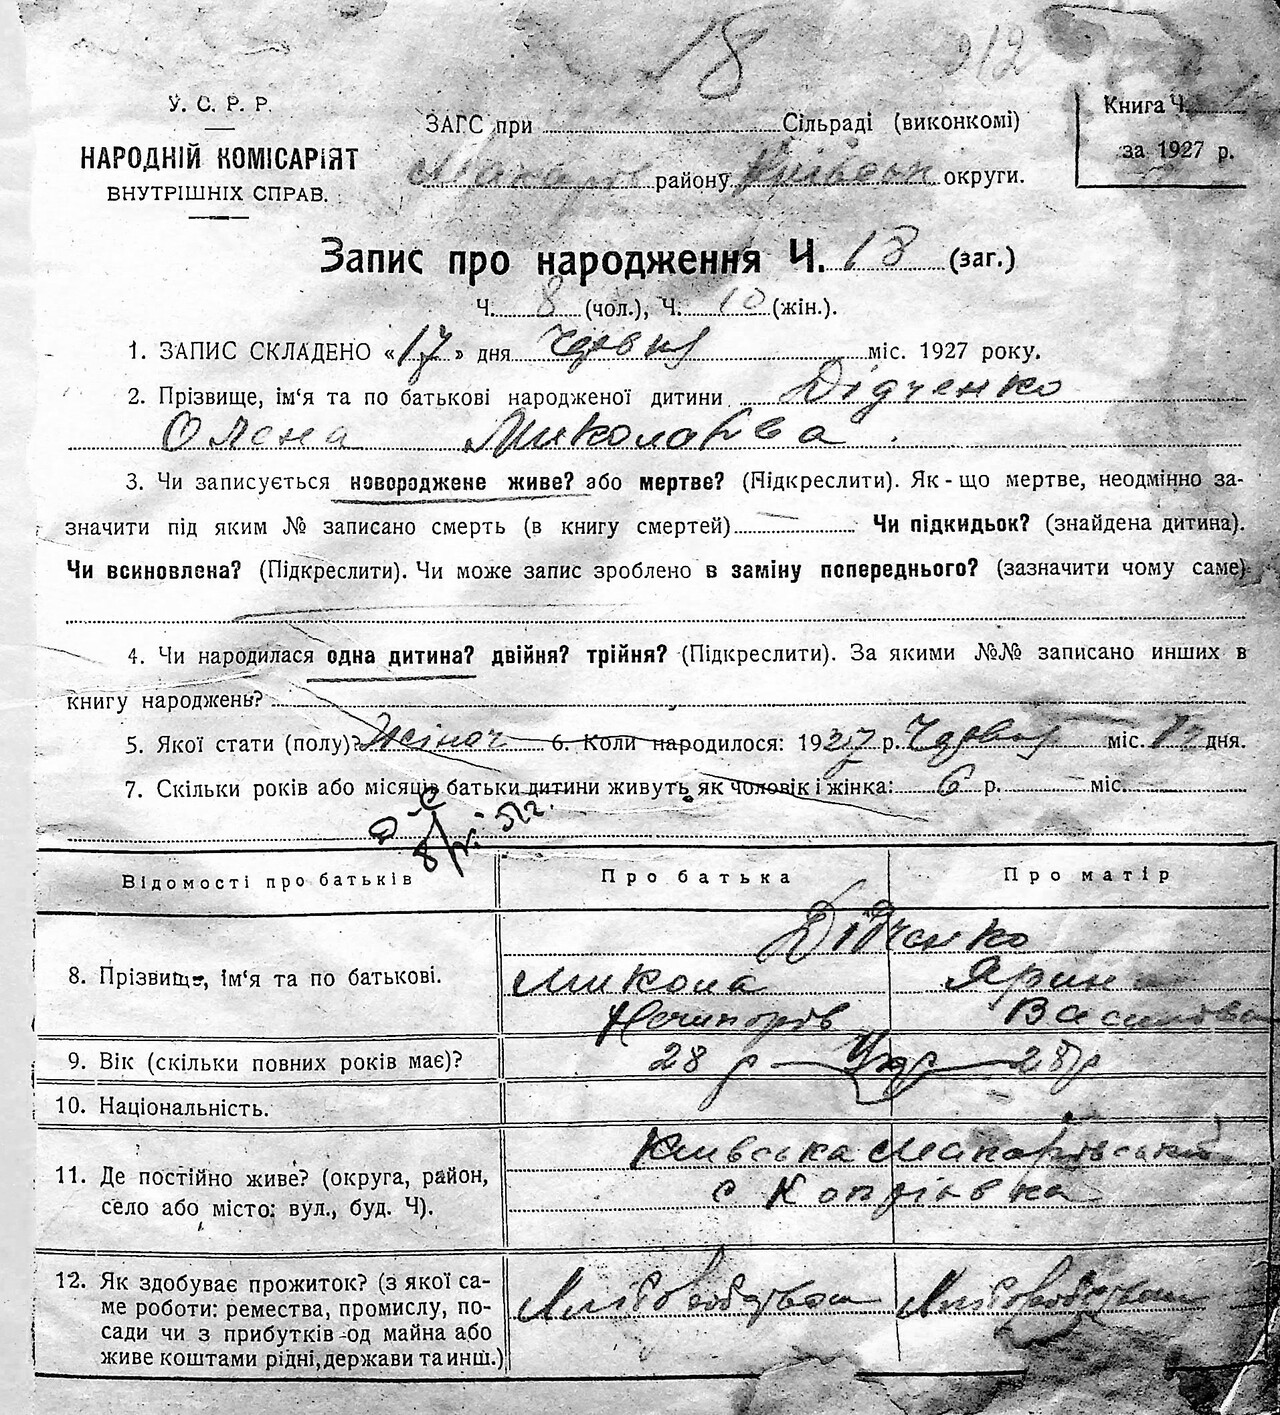 18 912
У. С. Р. Р.
НАРОДНІЙ КОМІСАРІЯТ
ВНУТРІШНІХ СПРАВ.
ЗАГС при Сільраді (виконкомі)
Макарів району Київськ округи.
Книга Ч.
за 1927 р.
Запис про народження Ч. 18 (заг.)
Ч. 8 (чол.), Ч. 10 (жін.).
1. ЗАПИС СКЛАДЕНО «17» дня Червня міс. 1927 року.
2. Прізвище, ім‘я та по батькові народженої дитини Дідченко
Олена Миколаївва
3. Чи записується новороджене живе? або мертве? (Підкреслити). Як-що мертве, неодмінно за-
значити під яким № записано смерть (в книгу смертей) Чи підкидьок? (знайдена дитина).
Чи всиновлена? (Підкреслити). Чи може запис зроблено в заміну попереднього? (зазначити чому саме)
4. Чи народилася одна дитина? двійня? трійня? (Підкреслити). За якими №№ записано инших в
книгу народжень?
5. Якої стати (полу)? Жіноч 6. Коли народилося: 1927 р. Червня міс. дня.
7. Скільки років або місяців батьки дитини живуть як чоловік і жінка: 6 р. міс.
Відомості про батьків Про батька Про матір
Дідченко
8. Прізвище, ім‘я та по батькові. Микола Ярина
Нечипорів Василівна
9. Вік (скільки повних років має)? 28 р Укр 28 р
10. Національність.
Київська Макарівський
11. Де постійно живе? (округа, район, с Копіївка
село або місто: вул., буд. Ч).
12. Як здобуває прожиток? (з якої са-
ме роботи: ремества, промислу, по- Хліборобством Хліборобством
сади чи з прибутків од майна або
живе коштами рідні, держави та инш.)